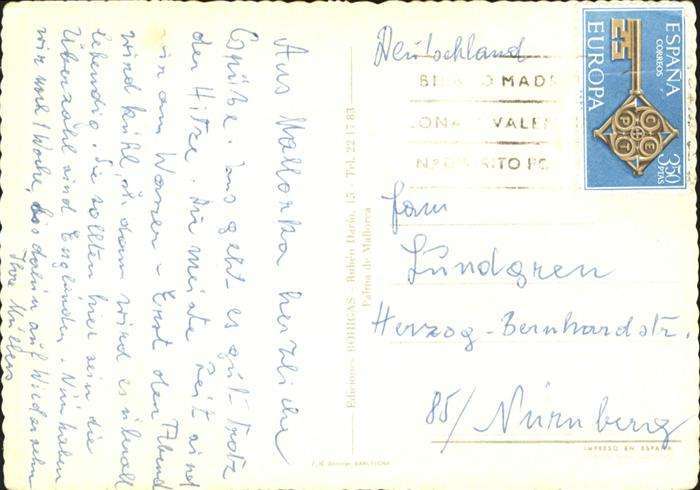 Aus Mallorka herzliche
Grüße. Uns geht es gut trotz
der Hitze. Die meiste Zeit sind
wir am Wasser - Erst der Abend
wird kühl, dann wird es
lebendig. Sie sollten hier sein die
Überzahl sind Engländer. Nun haben
wir noch 1 Woche, bis dahin auf Wiedersehn
Ihre
Ediciones BOHIGAS - Rubén Darío, 15 - Tel. 22 17 83
Palma de Mallorca
BARCELONA
Deutschland
ESPAÑA
CORREOS
EUROPA
CEPT
3'50
PTAS
MADR
VALEN
Fam
Lundgren
Herzog-Bernhardstr.
85/Nürnberg
IMPRESO EN ESPAÑA